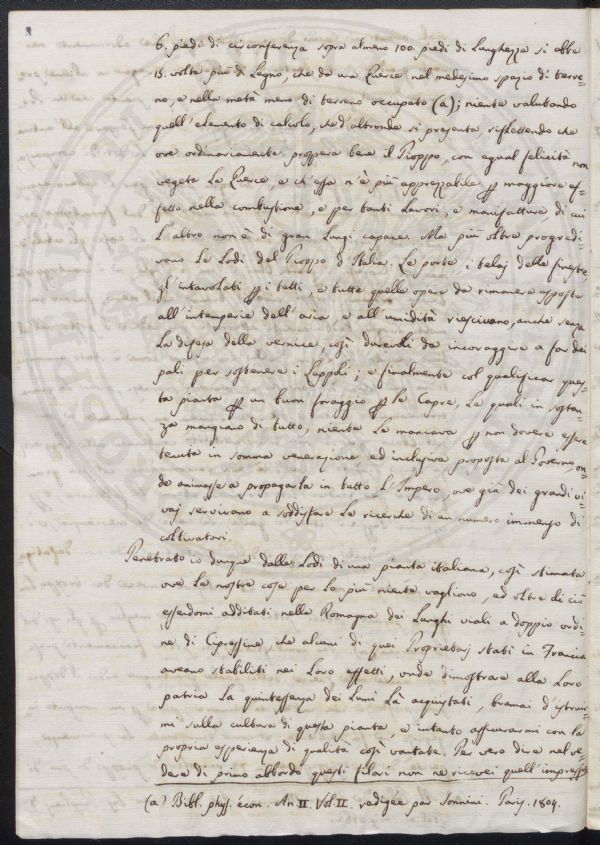 6. piedi di circonferenza sopra almeno 100. piedi di Lunghezza si ebbe
15. volte più di Legno, che da una Querce nel medesimo spazio di terre=
no, e nella metà meno di terreno occupato (a); niente valutando
quell'elemento di calcolo, che d'altronde si presenta riflettendo che
ove ordinariamente prospera bene il Pioppo, con egual felicità non
vegeta la Querce, e ch'essa n'è più apprezzabile per maggiore ef=
fetto nella combustione, e per tanti Lavori, e manifatture di cui
L'altro non è di gran Lungi capace. Ma più oltre progredi=
vono le Lodi del Pioppo d'Italia. Le porte, i telaj delle finestre,
gl'intavolati per i tetti, e tutte quelle opere da rimanere esposte
all'intemperie dell'aria e all'umidità riescivano, anche senza
la difesa della vernice, così durevoli da incoraggire a far dei
pali per sostenere i Luppoli; e finalmente col qualificar ques=
ta pianta per un buon foraggio per le Capre, Le quali in sostan=
za mangiano di tutto, niente Le mancava per non dovere essere
tenuta in somma venerazione ed inclusiva proposta al Governo, on=
de animasse a propagarla in tutto l'Impero, ove già dei grandi vi=
vaj servivano a soddisfare le ricerche di un numero immenso di
coltivatori.
Penetrato io dunque dalle Lodi di una pianta italiana, così stimata
ove le nostre cose per lo più niente vagliono, ed oltre di ciò
essendomi additati nella Romagna dei Lunghi viali a doppio ordi=
ne di Cipressine, che alcuni di quei Proprietarj stati in Francia
aveano stabiliti nei Loro effetti, onde dimostrare alla Loro
patria La quintessenza dei Lumi Là acquistati, bramai d'istruir=
mi sulla cultura di questa pianta, e intanto assicurarmi con la
propria esperienza di qualità così vantate. Per vero dire nel ve=
dere di primo abbordo questi filari non ne ricevei quell'impress
(a) Bibl. phys. écon. An II. Vol II. redigée par Sonnini. Paris. 1804.